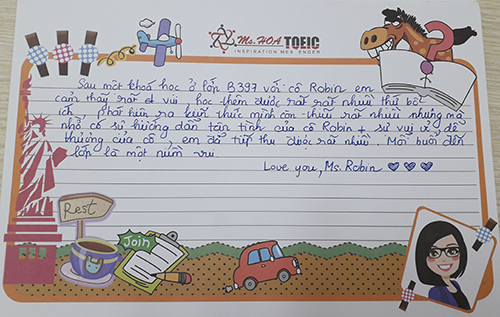 Ms. HOA TOEIC
INSPIRATION MESSENGER
Sau một khoá học ở lớp B397 với cô Robin em
cảm thấy rất là vui, học thêm được rất rất nhiều thứ bổ
ích, phát hiện ra kiến thức mình còn thiếu rất nhiều nhưng mà
nhờ có sự hướng dẫn tận tình của cô Robin + sự vui vẻ, dễ
thương của cô, em đã tiếp thu được rất nhiều. Mỗi buổi đến
lớp là một niềm vui.
Love you, Ms. Robin ♡♡♡
Rest
Join